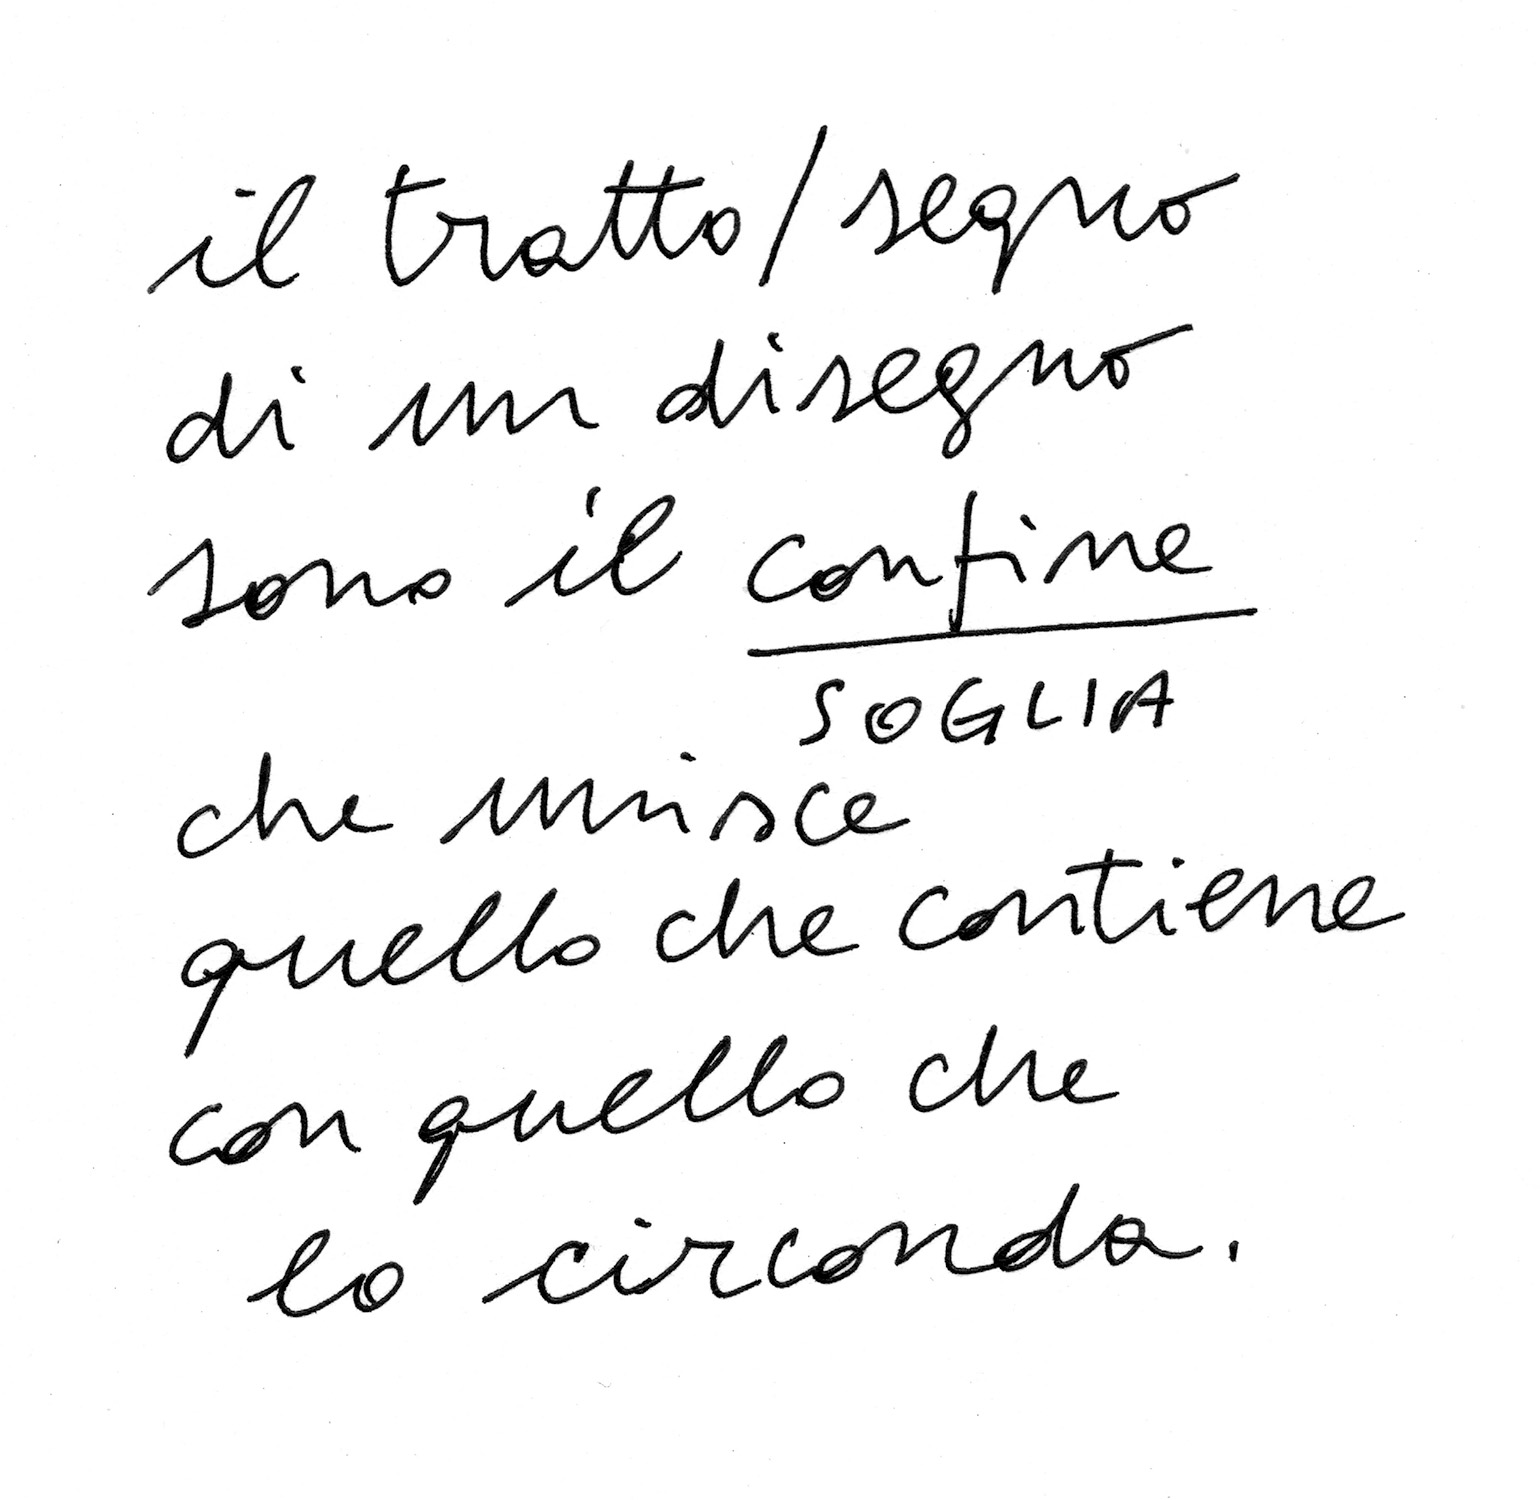 il tratto/segno
di un disegno
sono il confine
SOGLIA
che unisce
quello che contiene
con quello che
lo circonda.